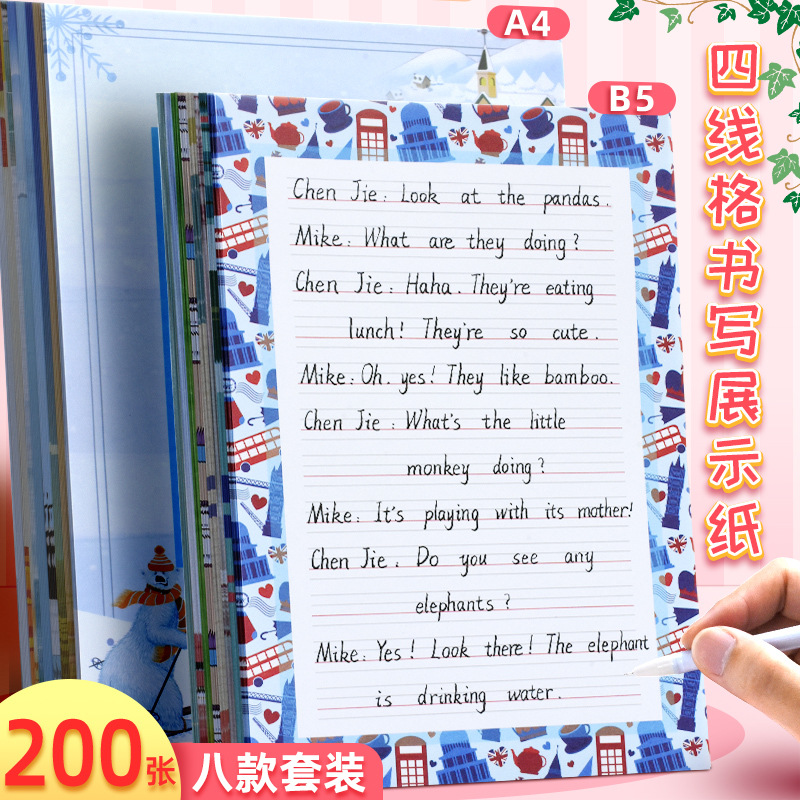 A4
B5
四线格书写展示纸
Chen Jie: Look at the pandas.
Mike: What are they doing?
Chen Jie: Haha. They're eating
lunch! They're so cute.
Mike: Oh. yes! They like bamboo.
Chen Jie: What's the little
monkey doing?
Mike: It's playing with its mother!
Chen Jie: Do you see any
elephants?
Mike: Yes! Look there! The elephant
is drinking water.
200张
八款套装